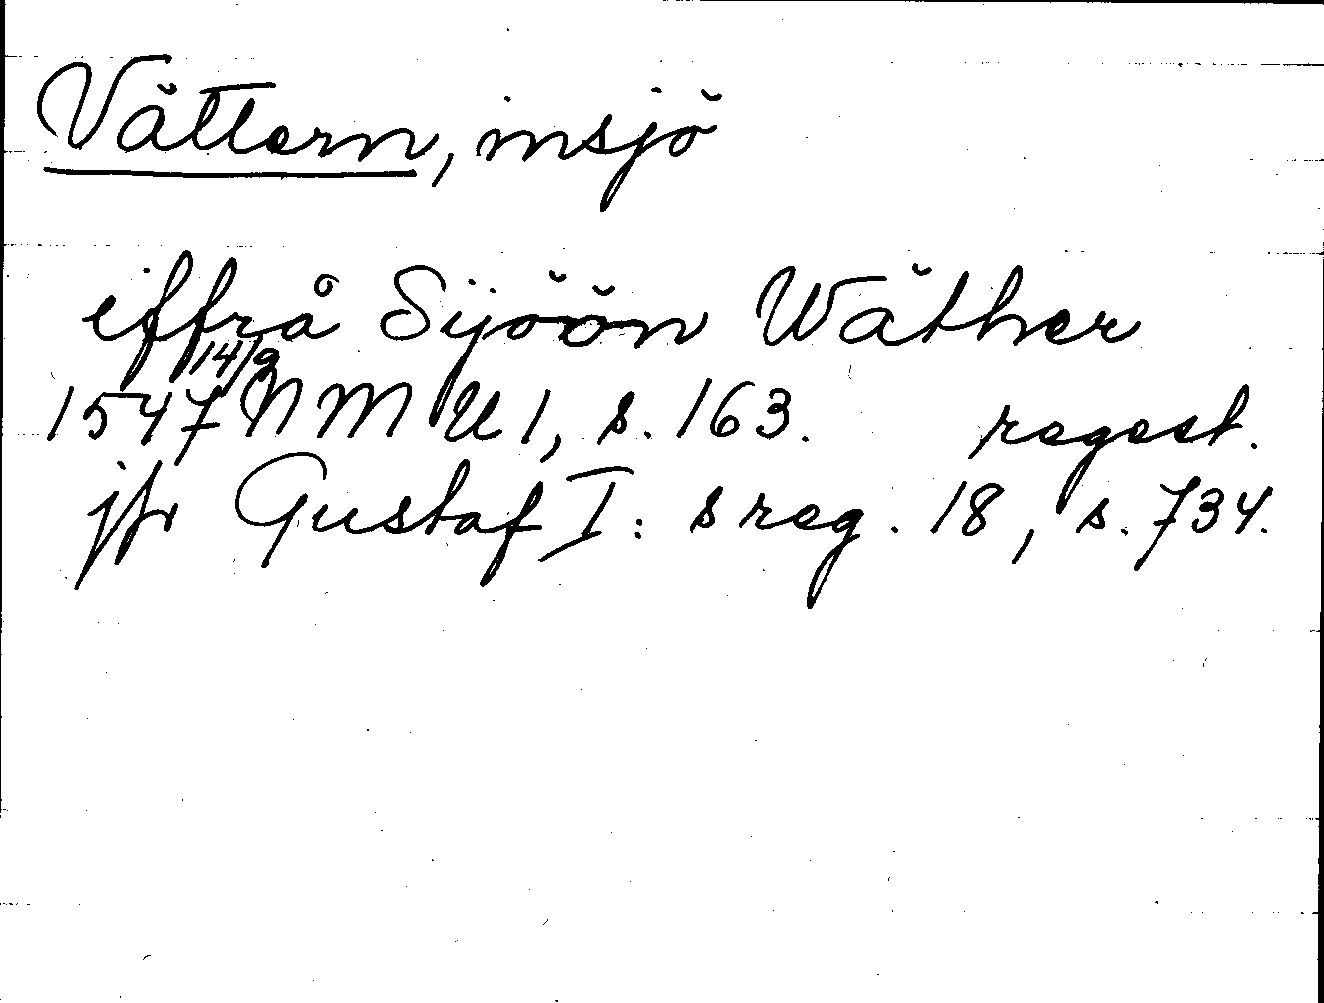 Vättern, insjö
iffrå Sijöön Wäther
1547 14/9 NMU 1, s. 163. regest.
jfr Gustaf I:s reg. 18, s. 734.